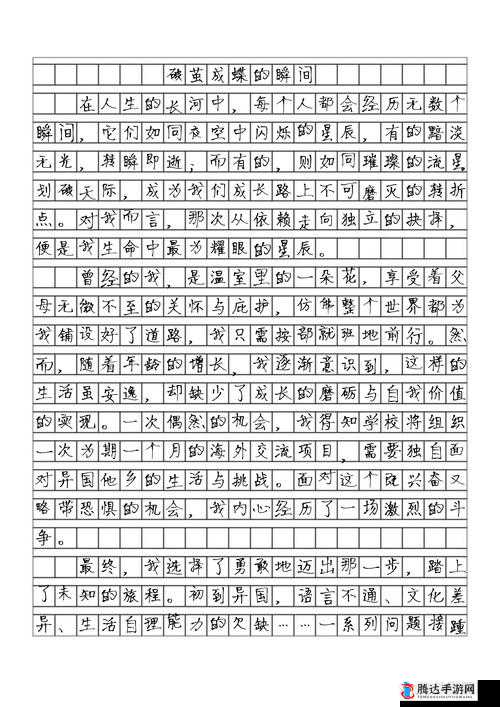 破茧成蝶的瞬间
在人生的长河中，每个人都会经历无数个
瞬间，它们如同夜空中闪烁的星辰，有的黯淡
无光，转瞬即逝；而有的，则如同璀璨的流星
划破天际，成为我们成长路上不可磨灭的转折
点。对我而言，那次从依赖走向独立的抉择，
便是我生命中最为耀眼的星辰。
曾经的我，是温室里的一朵花，享受着父
母无微不至的关怀与庇护，仿佛整个世界都为
我铺设好了道路，我只需按部就班地前行。然
而，随着年龄的增长，我逐渐意识到，这样的
生活虽安逸，却缺少了成长的磨砺与自我价值
的实现。一次偶然的机会，我得知学校将组织
一次为期一个月的海外交流项目，需要独自面
对异国他乡的生活与挑战。面对这个既兴奋又
略带恐惧的机会，我内心经历了一场激烈的斗
争。
最终，我选择了勇敢地迈出那一步，踏上
了未知的旅程。初到异国，语言不通、文化差
异、生活自理能力的欠缺……一系列问题接踵
腾达手游网